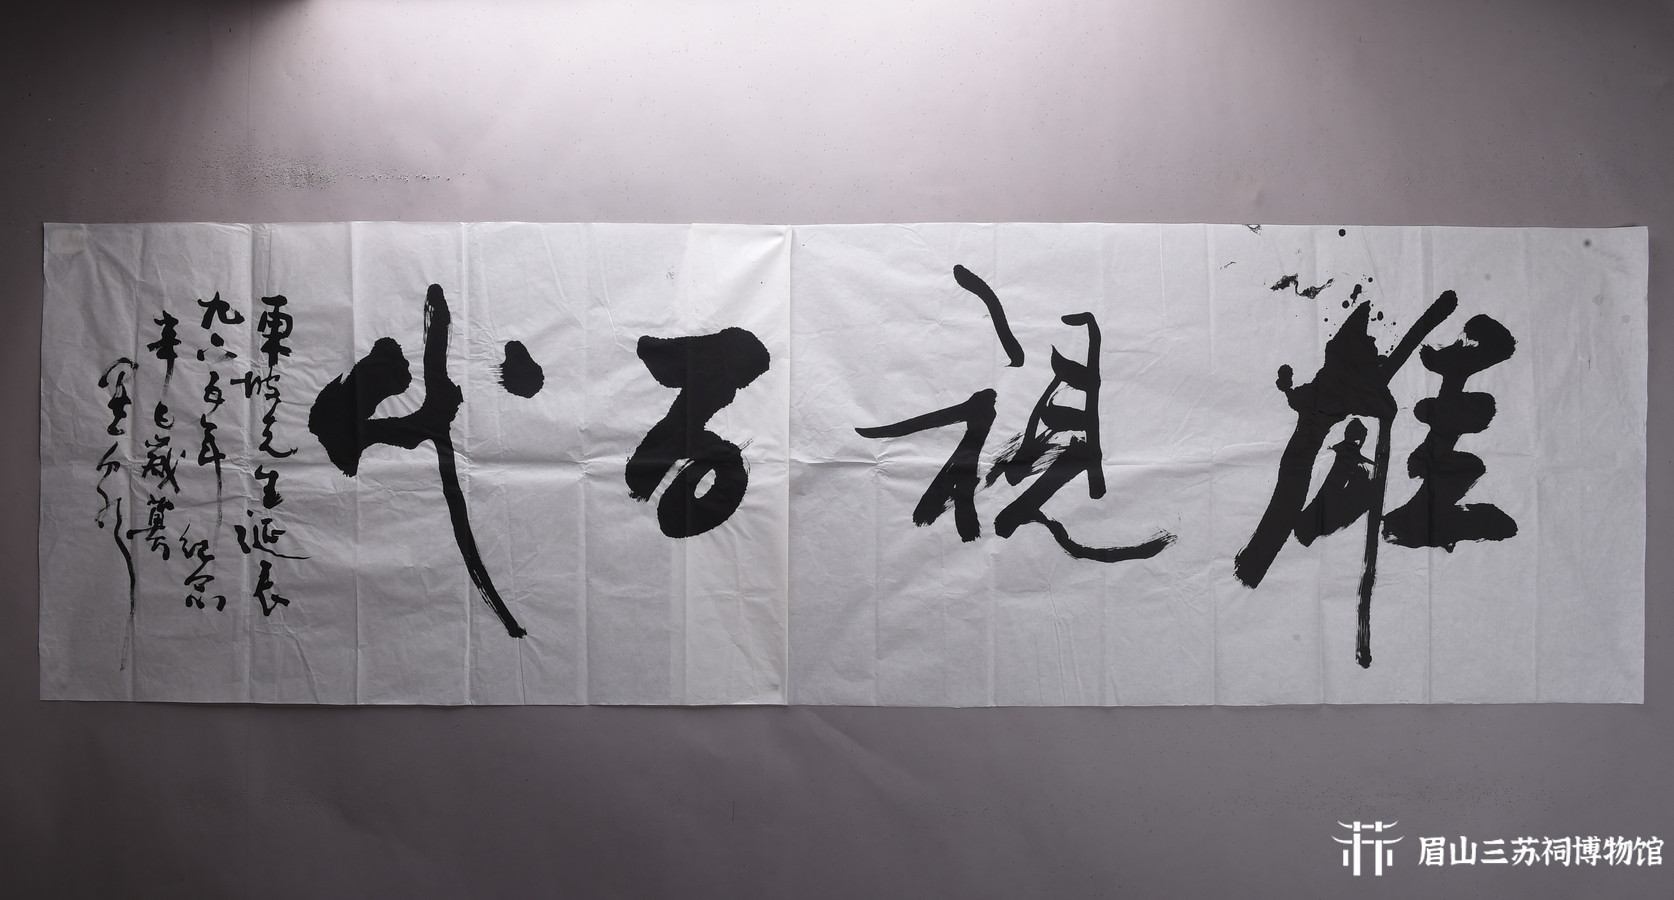 雄视百代
東坡先生诞辰
九六五年纪念
辛巳歲冀
眉山三苏祠博物馆